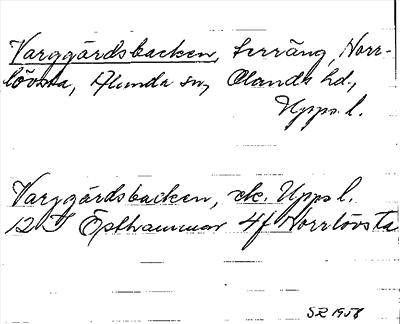 Varggårdsbacken, terräng, Norr-
lövsta, Alunda sn, Olands hd.,
Upps. l.
Varggårdsbacken, ek. Upps l.
12 I Östhammar 4f Norrlövsta
SR 1958